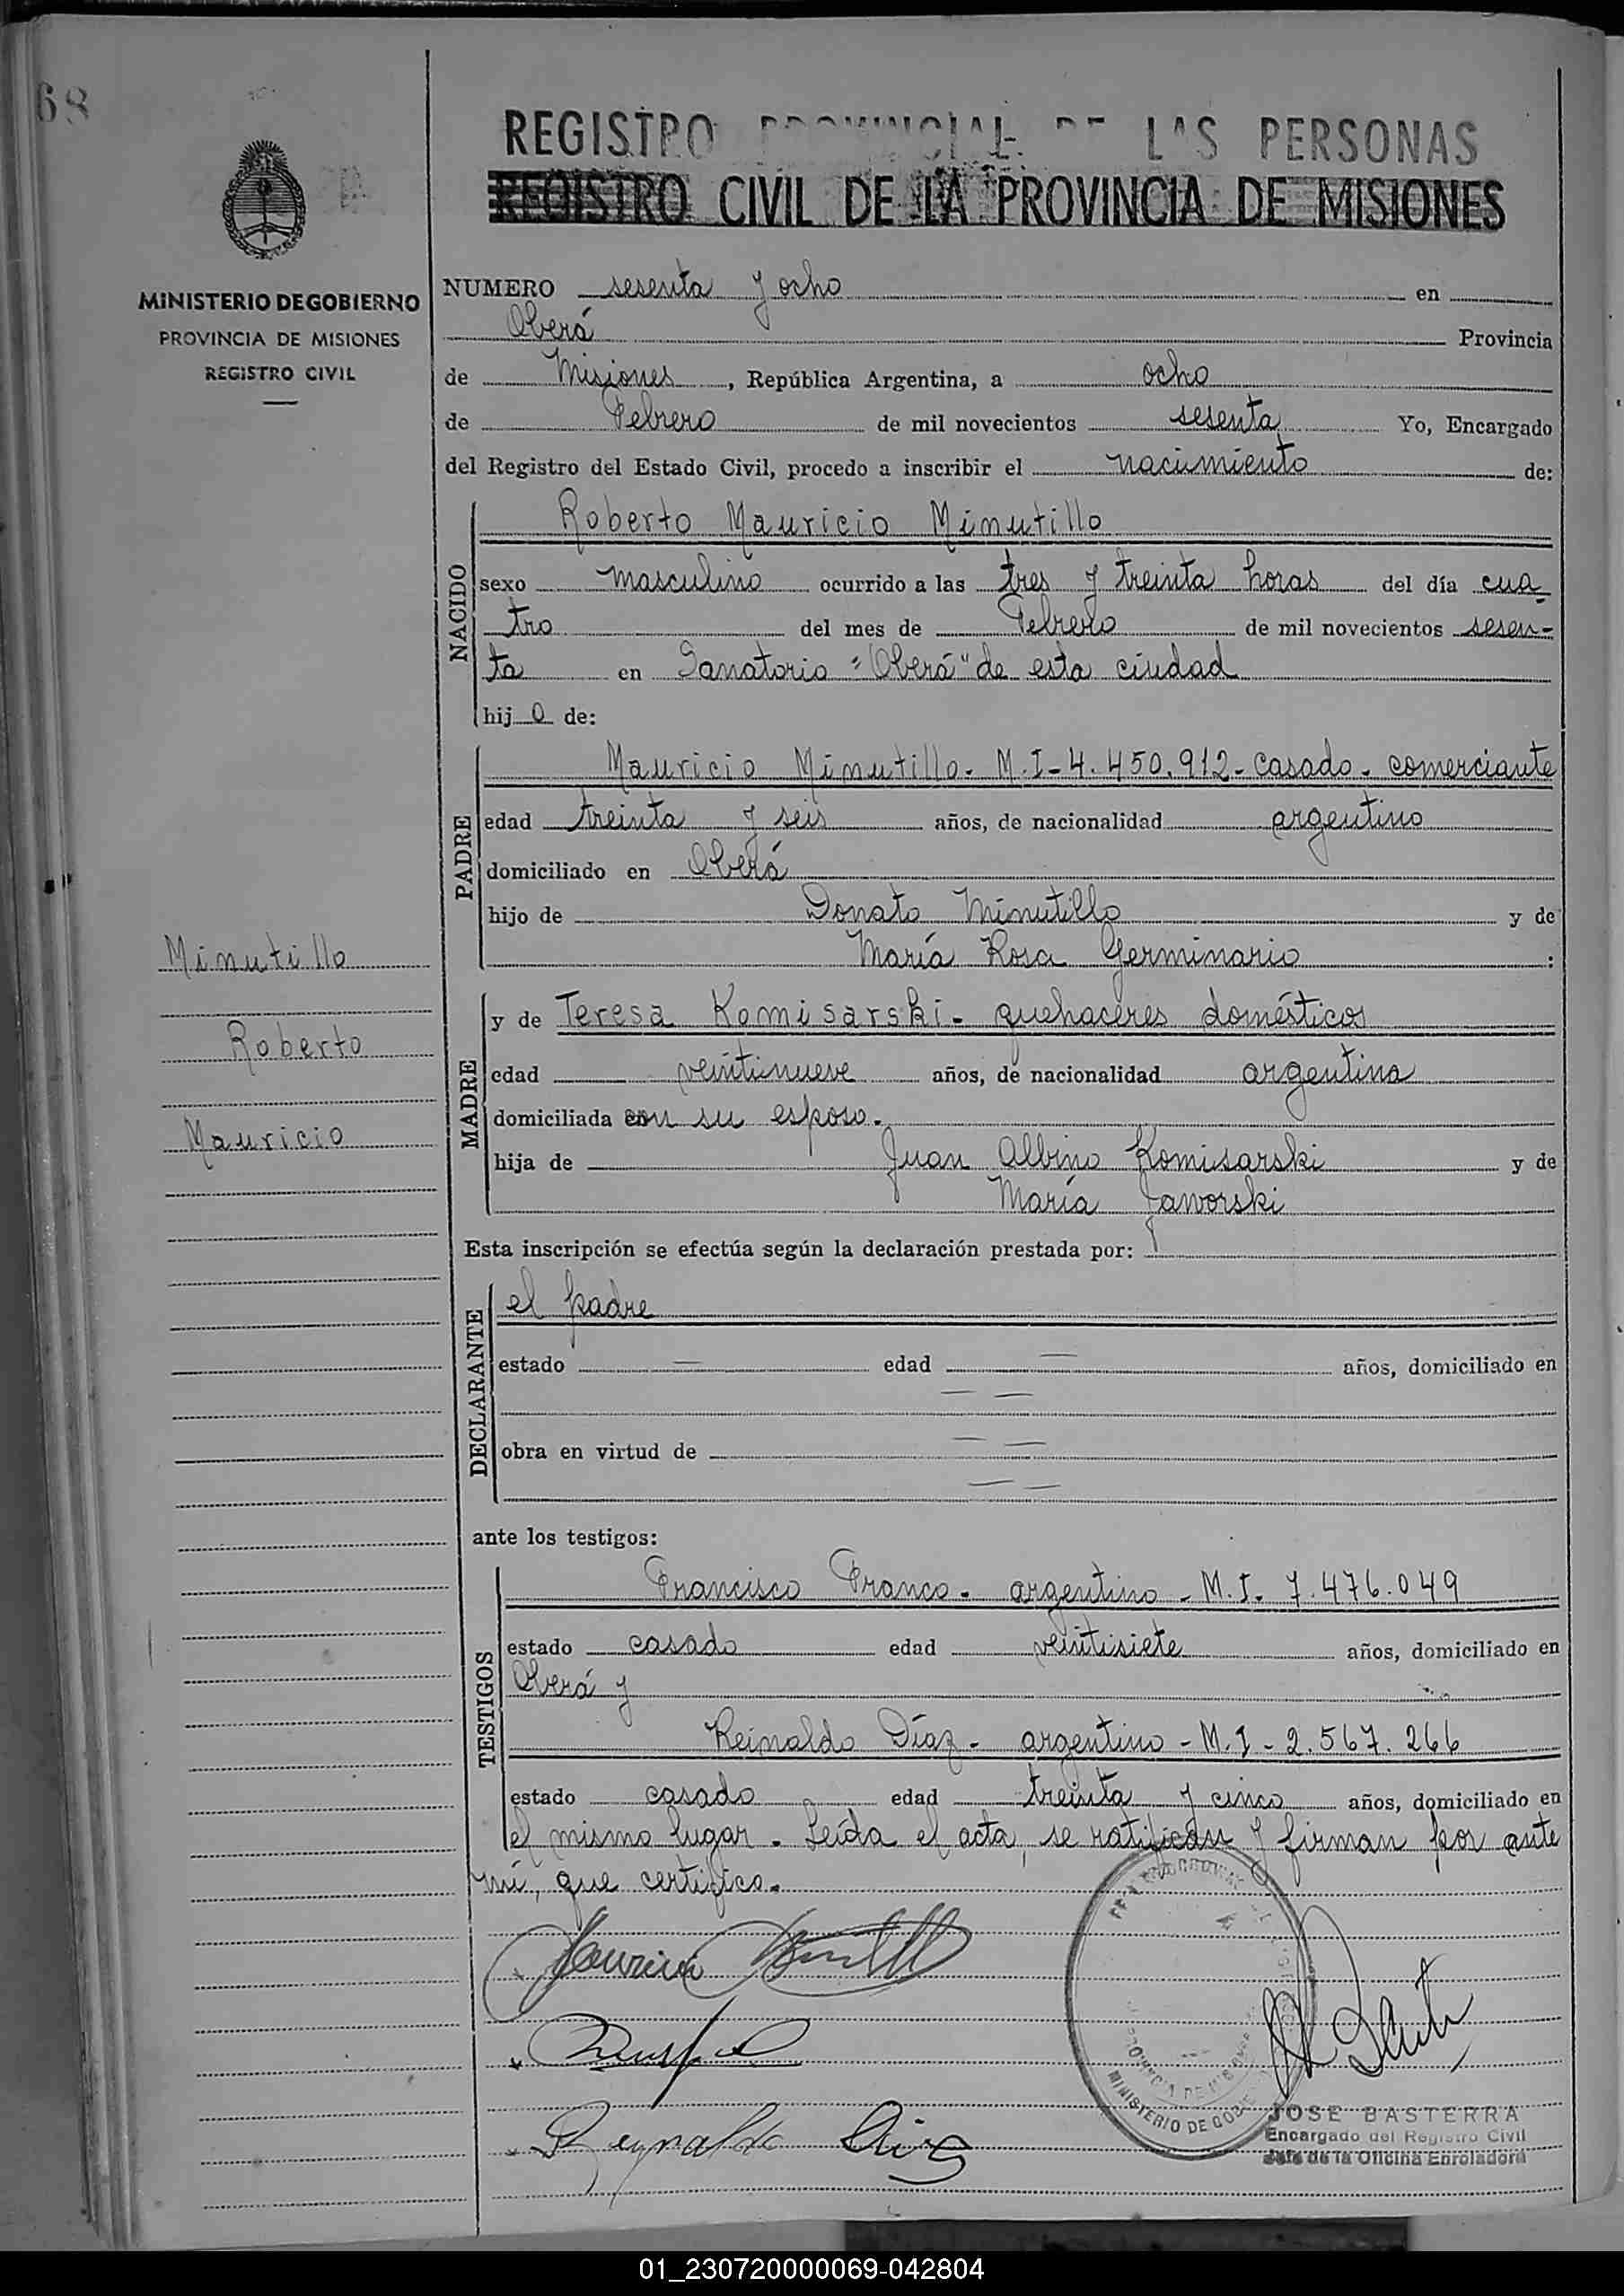 68
MINISTERIO DE GOBIERNO
PROVINCIA DE MISIONES
REGISTRO CIVIL
Minutillo
Roberto
Mauricio
REGISTRO PROVINCIAL DE LAS PERSONAS
REGISTRO CIVIL DE LA PROVINCIA DE MISIONES
NUMERO sesenta y ocho en
Oberá Provincia
de Misiones, República Argentina, a ocho
de Febrero de mil novecientos sesenta Yo, Encargado
del Registro del Estado Civil, procedo a inscribir el nacimiento de:
NACIDO
Roberto Mauricio Minutillo
sexo masculino ocurrido a las tres y treinta horas del día cua-
tro del mes de Febrero de mil novecientos sesen-
ta en Sanatorio "Oberá" de esta ciudad
hijo de:
PADRE
Mauricio Minutillo. M.I-4.450.912-casado-comerciante
edad treinta y seis años, de nacionalidad argentino
domiciliado en Oberá
hijo de Donato Minutillo y de
María Rosa Germinario :
MADRE
y de Teresa Komisarski- quehaceres domésticos
edad veintinueve años, de nacionalidad argentina
domiciliada con su esposo.
hija de Juan Albino Komisarski y de
María Jaworski
Esta inscripción se efectúa según la declaración prestada por:
DECLARANTE
el padre
estado — edad — años, domiciliado en
— —
obra en virtud de — —
— —
ante los testigos:
TESTIGOS
Francisco Franco- argentino - M.I. 7.476.049
estado casado edad veintisiete años, domiciliado en
Oberá y
Reinaldo Díaz- argentino - M.I - 2.567.266
estado casado edad treinta y cinco años, domiciliado en
el mismo lugar. Leída el acta, se ratifican y firman por ante
mí, que certifico.
Mauricio Minutillo
Reynaldo Diaz
PROVINCIA DE MISIONES
MINISTERIO DE GOBIE
JOSE BASTERRA
Encargado del Registro Civil
Jefe de la Oficina Enroladora
01_230720000069-042804